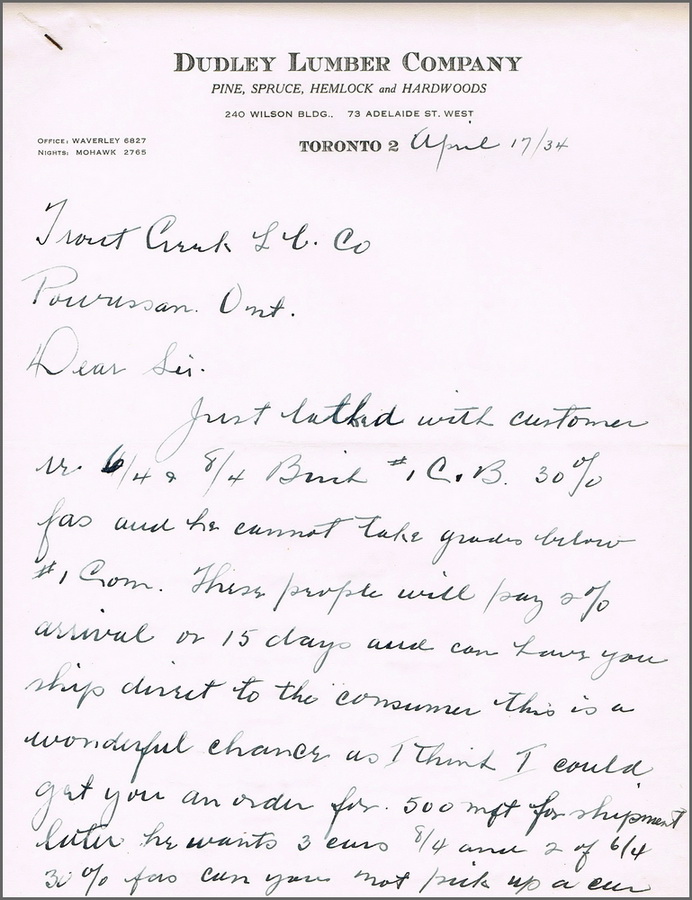 DUDLEY LUMBER COMPANY
PINE, SPRUCE, HEMLOCK and HARDWOODS
240 WILSON BLDG., 73 ADELAIDE ST. WEST
OFFICE: WAVERLEY 6827
NIGHTS: MOHAWK 2765
TORONTO 2 April 17/34
Trout Creek L C. Co
Powassan. Ont.
Dear Sir.
Just talked with customer
re. 6/4 & 8/4 Birch #1 C. B. 30%
fas and he cannot take grades below
#1 Com. These people will pay 2%
arrival or 15 days and can have you
ship direct to the consumer this is a
wonderful chance as I think I could
get you an order for. 500 mft for shipment
later he wants 3 cars 8/4 and 2 of 6/4
30% fas can you not pick up a car